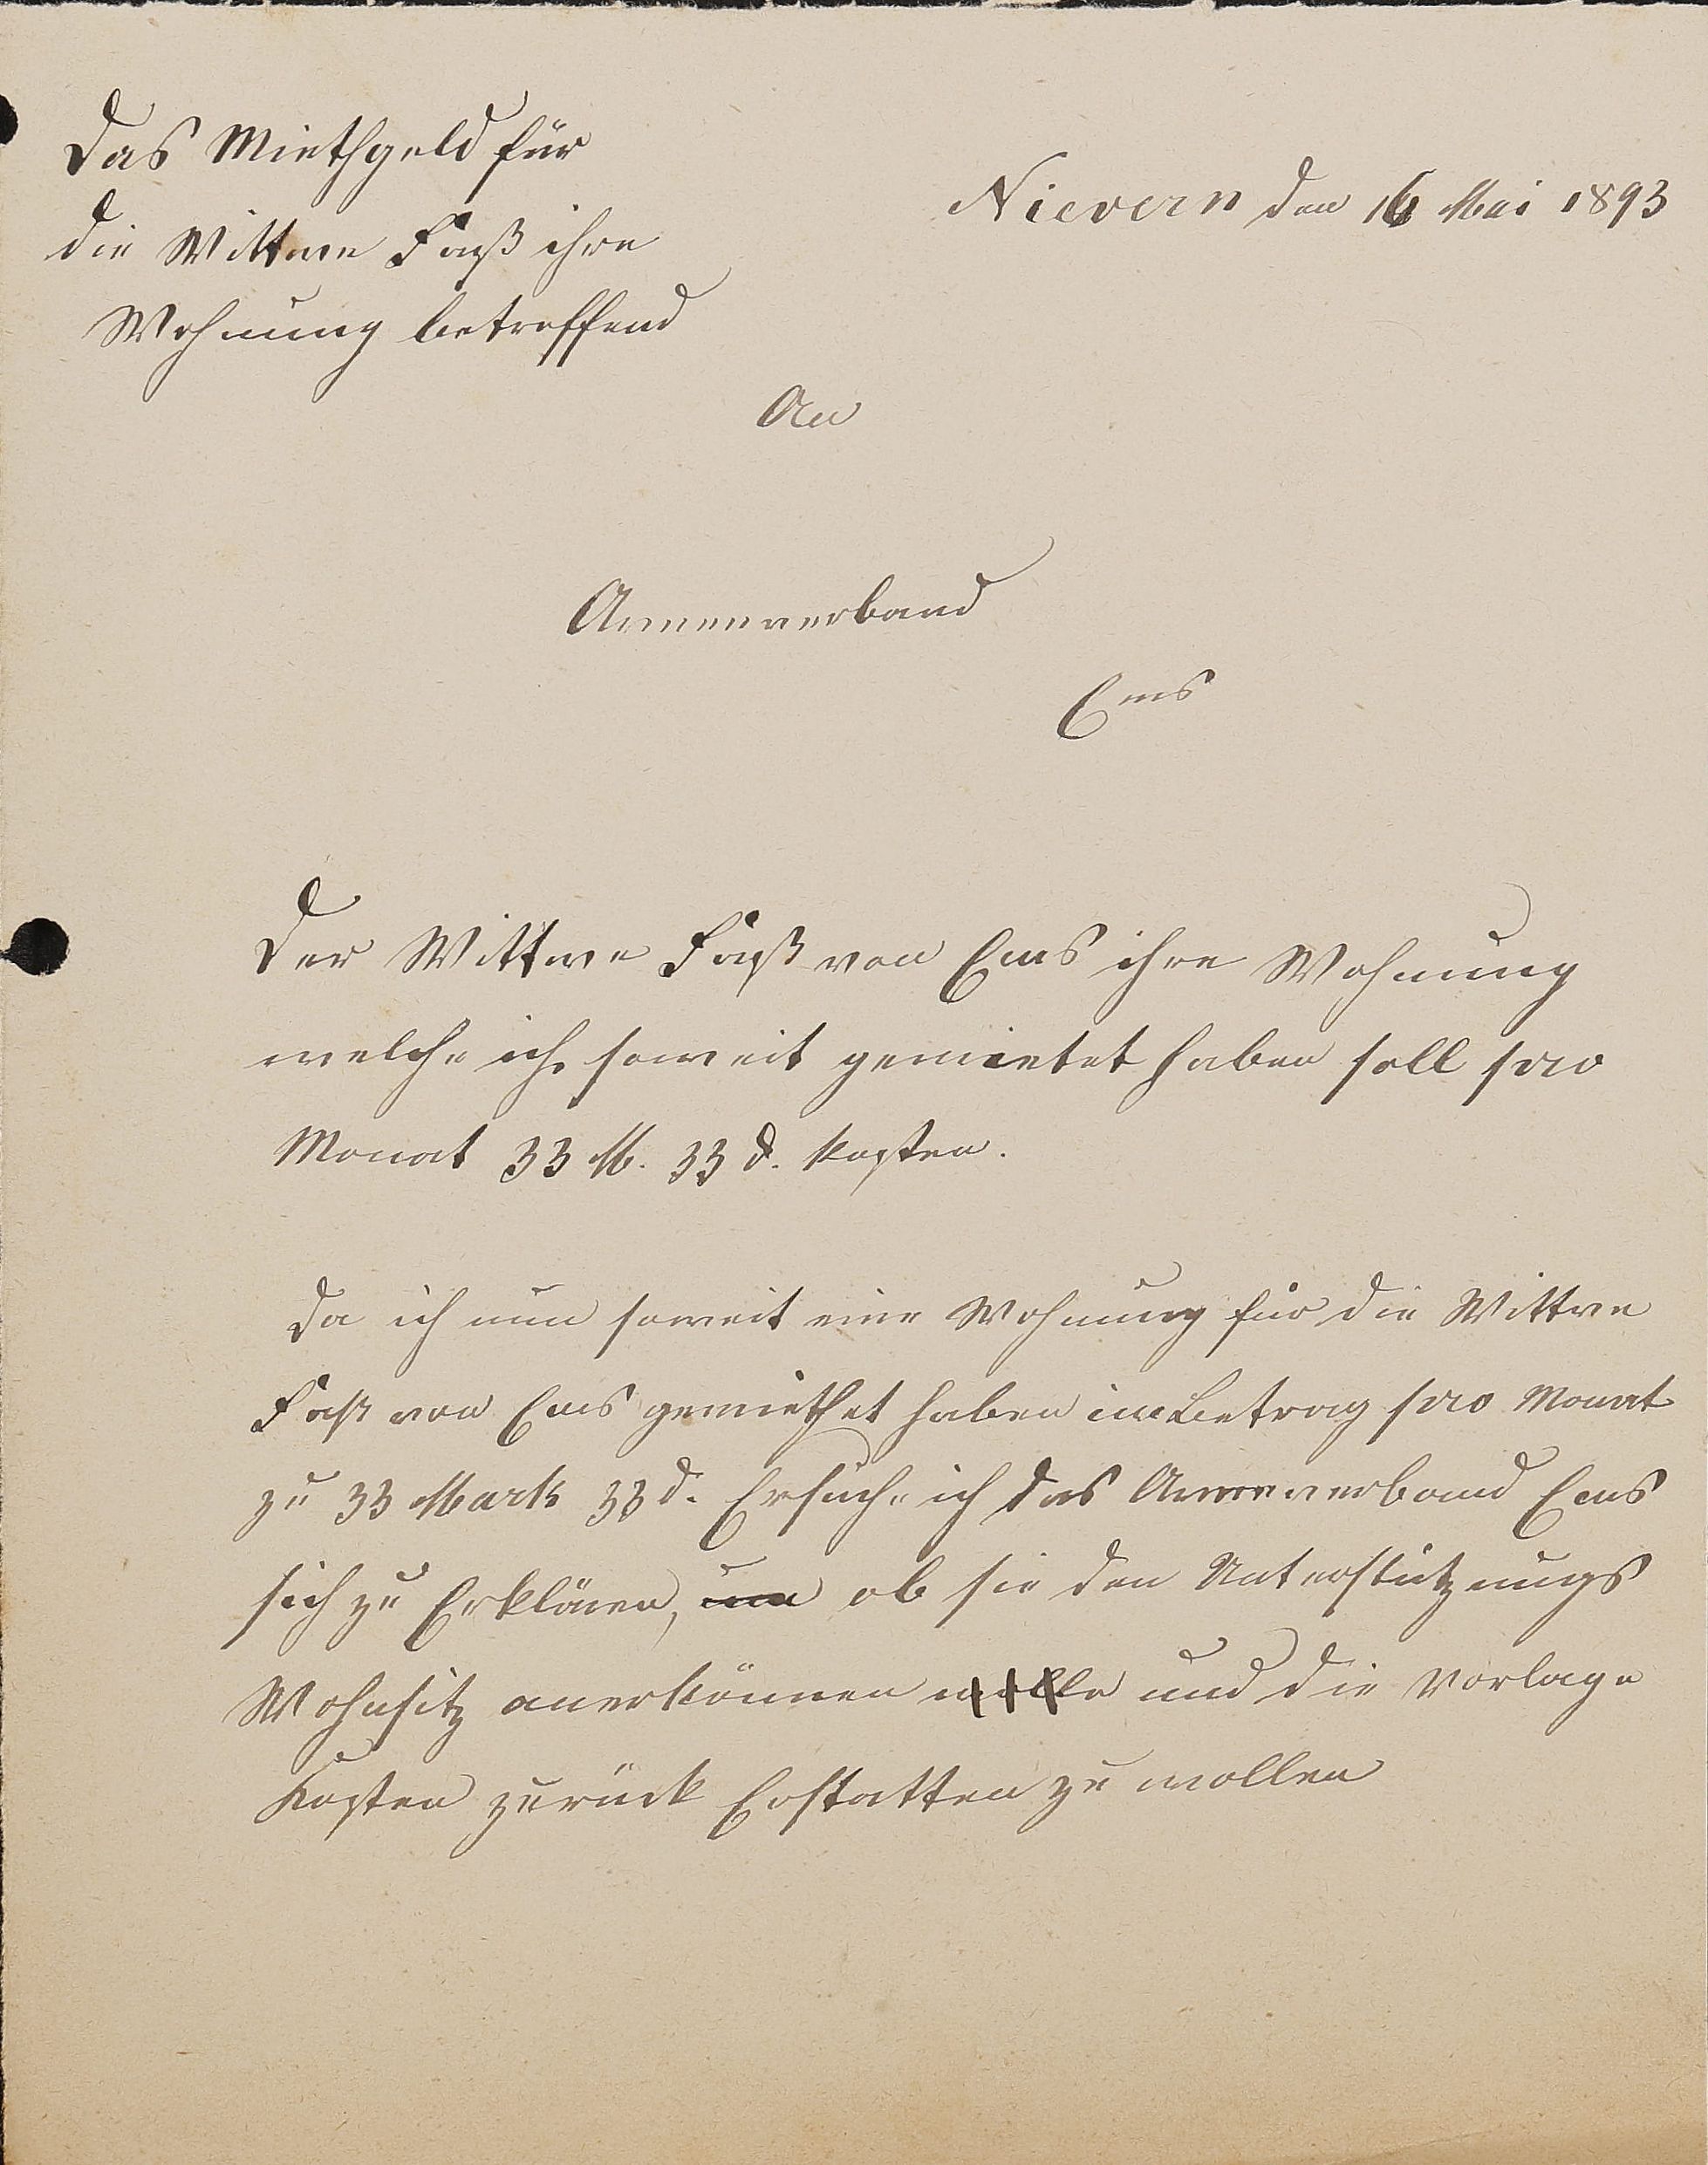 Das Miethgeld für
die Wittwe Faß ihre
Wohnung betreffend
Nievern den 16 Mai 1893
An
Armenverband
Ems
Der Wittwe Faß von Ems ihre Wohnung
welche ich soweit gemietet haben soll pro
Monat 33 M. 33 d. kosten.
Da ich nun soweit eine Wohnung für die Wittwe
Faß von Ems gemiethet haben im Betrag pro Monat
zu 33 Mark 33 d. Ersuche ich das Armenverband Ems
sich zu Erklären, um ob sie den Unterstützungs
Wohnsitz anerkönnen wolle und die Vorlage
Kosten zurück Erstatten zu wollen